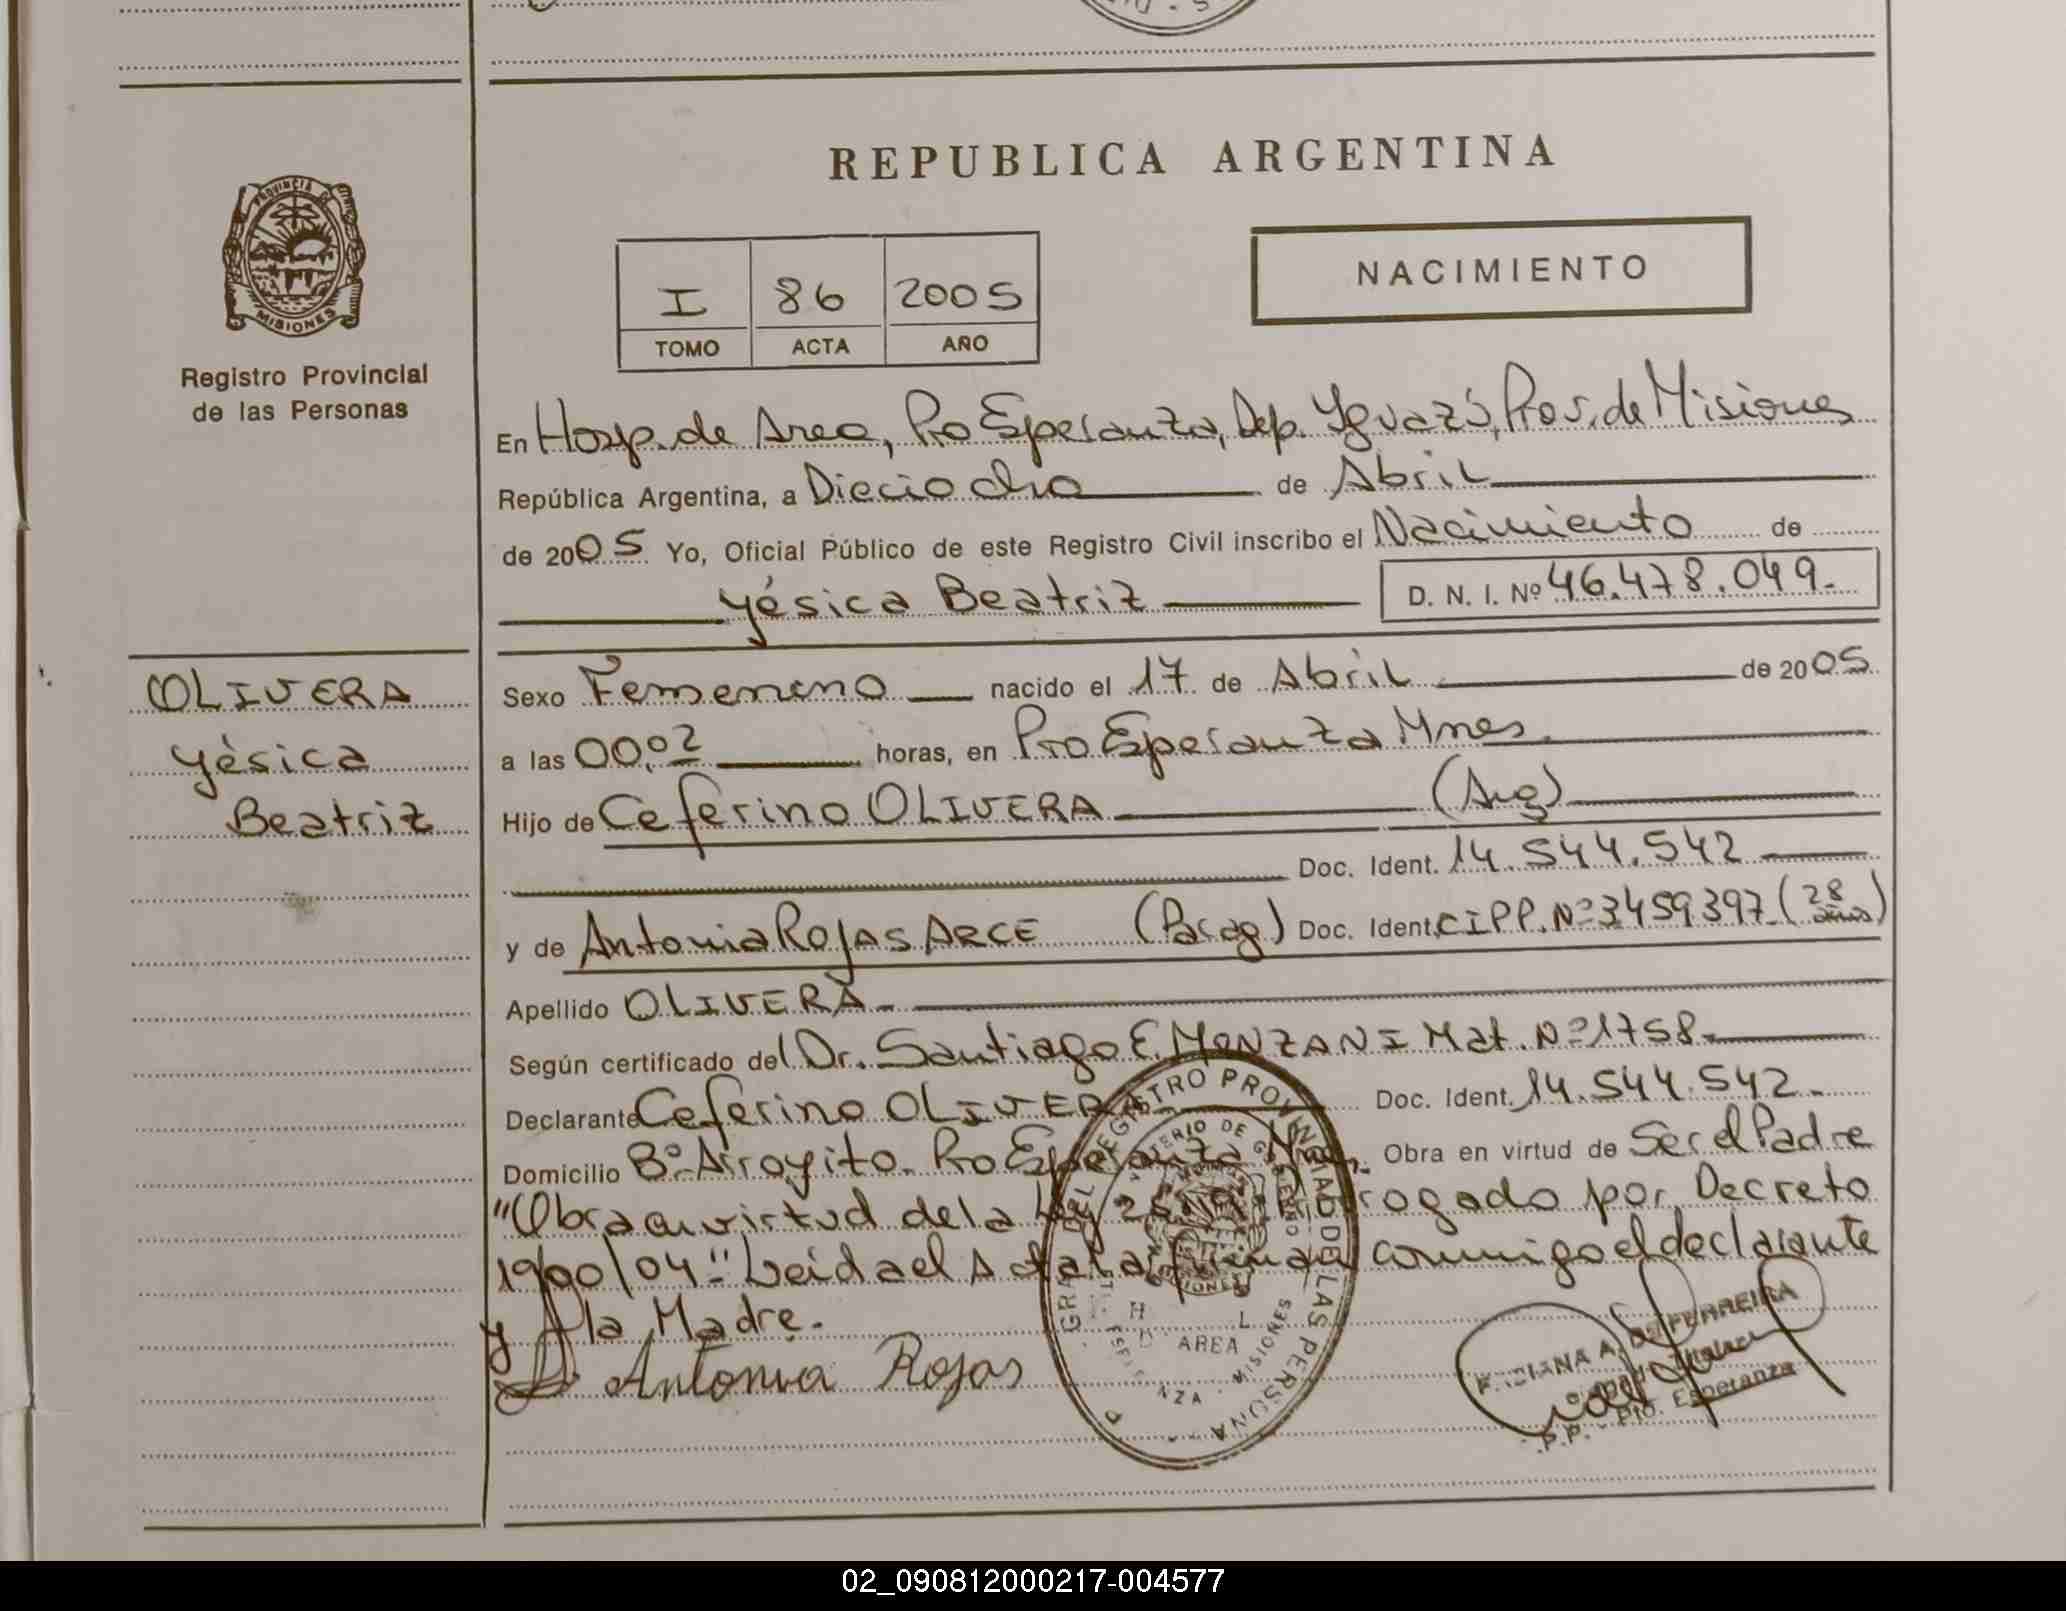 REPUBLICA ARGENTINA
PROVINCIA DE
MISIONES
Registro Provincial
de las Personas
I 86 2005
TOMO ACTA AÑO
NACIMIENTO
En Hosp. de Area, Pto Esperanza, Dep. Yguazú, Prov. de Misiones
República Argentina, a Dieciocho de Abril
de 2005 Yo, Oficial Público de este Registro Civil inscribo el Nacimiento de
Yésica Beatriz D. N. I. Nº 46.478.049.-
OLIVERA
Yésica
Beatriz
Sexo Femenino nacido el 17 de Abril de 2005
a las 00:02 horas, en Pto Esperanza Mnes.
Hijo de Ceferino OLIVERA (Arg)
Doc. Ident. 14.544.542
y de Antonia ROJAS ARCE (Parag) Doc. Ident. CIPP. Nº 3459397 (28 años)
Apellido OLIVERA.-
Según certificado del Dr. Santiago E. MONZANI Mat. Nº 1758.-
Declarante Ceferino OLIVERA Doc. Ident. 14.544.542.-
Domicilio Bº Arroyito. Pto Esperanza Mnes. Obra en virtud de Ser el Padre
"Obra en virtud de la Ley Prorogado por Decreto
1900/04". Leida el Acta la firman conmigo el declarante
y la Madre.
Antonia Rojas
REGISTRO PROVINCIAL DE LAS PERSONAS
MINISTERIO DE GOBIERNO
AREA
MISIONES
A. DE FERREIRA
Pto. Esperanza
02_090812000217-004577